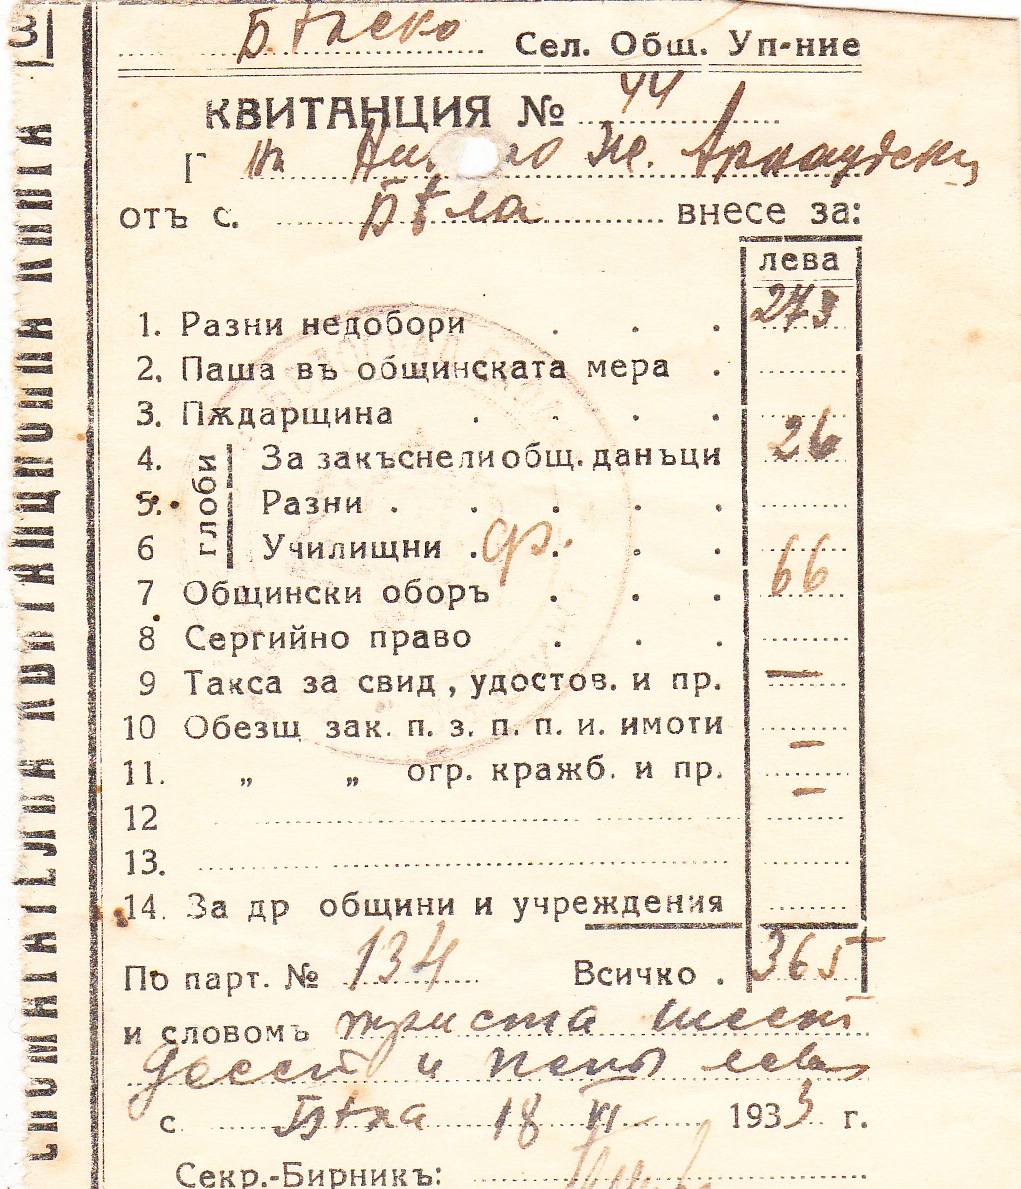 Бѣлско Сел. Общ. Уп-ние
КВИТАНЦИЯ № 44
Г нъ
отъ с. Бѣла внесе за:
лева
1. Разни недобори . . . 273
2. Паша въ общинската мера .
3. Пѫдарщина . . . .
глоби
4. За закъснели общ. данъци 26
5. Разни . . . . .
6 Училищни . ср. . . .
7 Общински оборъ . . . 66
8 Сергийно право . . .
9 Такса за свид , удостов. и пр. —
10 Обезщ зак. п. з. п. п. и. имоти –
11. „ „ огр. кражб. и пр. –
12
13.
14. За др общини и учреждения
По парт. № 134 Всичко . 365
и словомъ триста шесть
десеть и петь лева
с. Бѣла 18 VI 1933 г.
Секр.-Бирникъ:
СПОМАГАТЕЛНА КВИТАНЦИОННА КНИГА